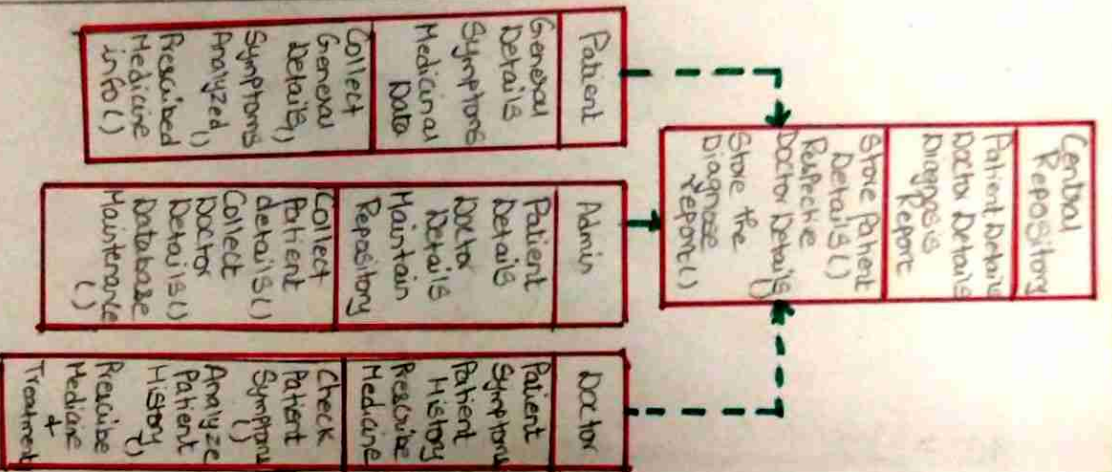 Central
Repository
Patient Details
Doctor Details
Diagnosis
Report
Store Patient
Details()
Respective
Doctor Details()
Store the
Diagnose
report()
Patient
General
Details
Symptoms
Medicinal
Data
Collect
General
Details()
Symptoms
Analyzed()
Prescribed
Medicine
info()
Admin
Patient
Details
Doctor
Details
Maintain
Repository
Collect
Patient
details()
Collect
Doctor
Details()
Database
Maintenance
()
Doctor
Patient
Symptoms
Patient
History
Prescribe
Medicine
Check
Patient
Symptoms
()
Analyze
Patient
History()
Prescibe
Medicine
&
Treatment